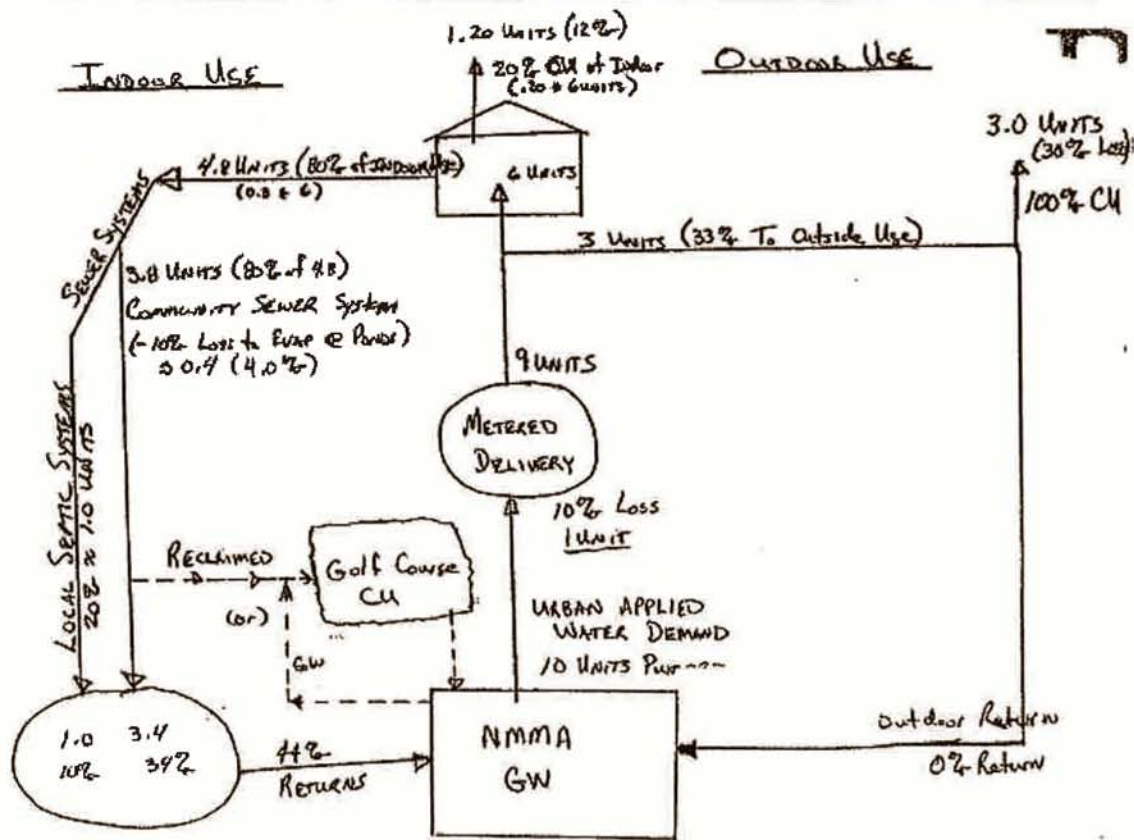 INDOOR USE
1.20 UNITS (12%)
20% CU of Indoor
(.20 * 6 UNITS)
OUTDOOR USE
3.0 UNITS
(30% Loss)
100% CU
4.8 UNITS (80% of INDOOR Use)
(0.8 * 6)
6 UNITS
3 UNITS (33% To Outside Use)
SEWER SYSTEMS
3.8 UNITS (80% of 4.8)
COMMUNITY SEWER SYSTEM
(-10% Loss to EVAP @ PONDS)
0.4 (4.0%)
9 UNITS
METERED
DELIVERY
10% Loss
1 UNIT
LOCAL SEPTIC SYSTEMS
20% ≈ 1.0 UNITS
RECLAIMED
(or)
GW
Golf Course
CU
URBAN APPLIED
WATER DEMAND
10 UNITS
NMMA
GW
Outdoor Return
0% Return
1.0 3.4
10% 34%
44%
RETURNS